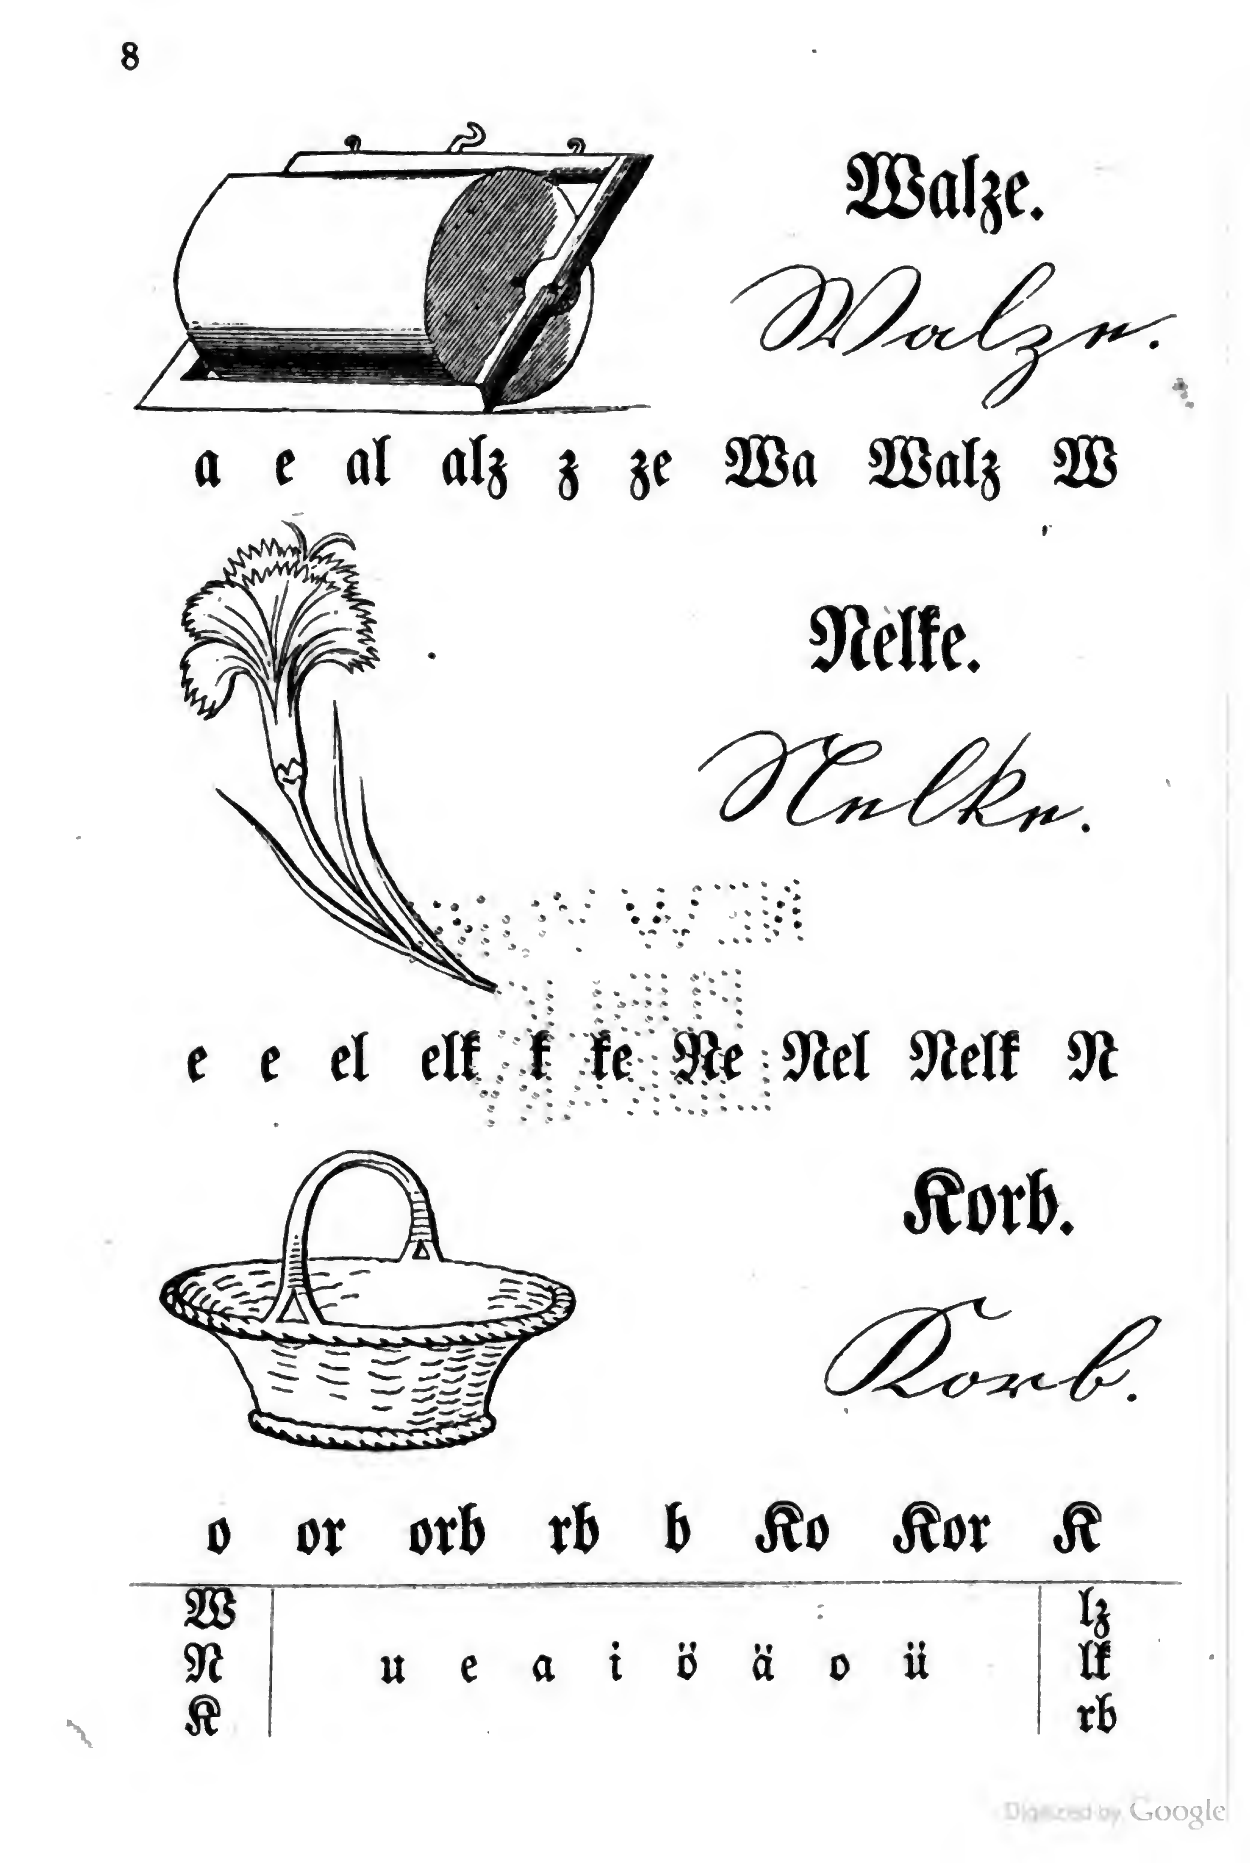 8
Walze.
Walze.
a e al alz z ze Wa Walz W
Nelke.
Nelke.
e e el elk k ke Ne Nel Nelk N
Korb.
Korb.
o or orb rb b Ko Kor K
W lz
N u e a i ö ä o ü lk
K rb
Digitized by Google